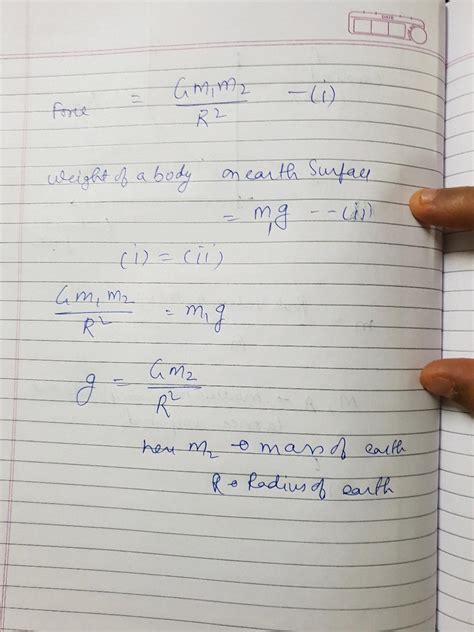 DATE
Force = Gm₁m₂/R² —(i)
weight of a body on earth Surface
= m₁g --(ii)
(i) = (ii)
Gm₁m₂/R² = m₁g
g = Gm₂/R²
here m₂ → mass of earth
R → Radius of earth